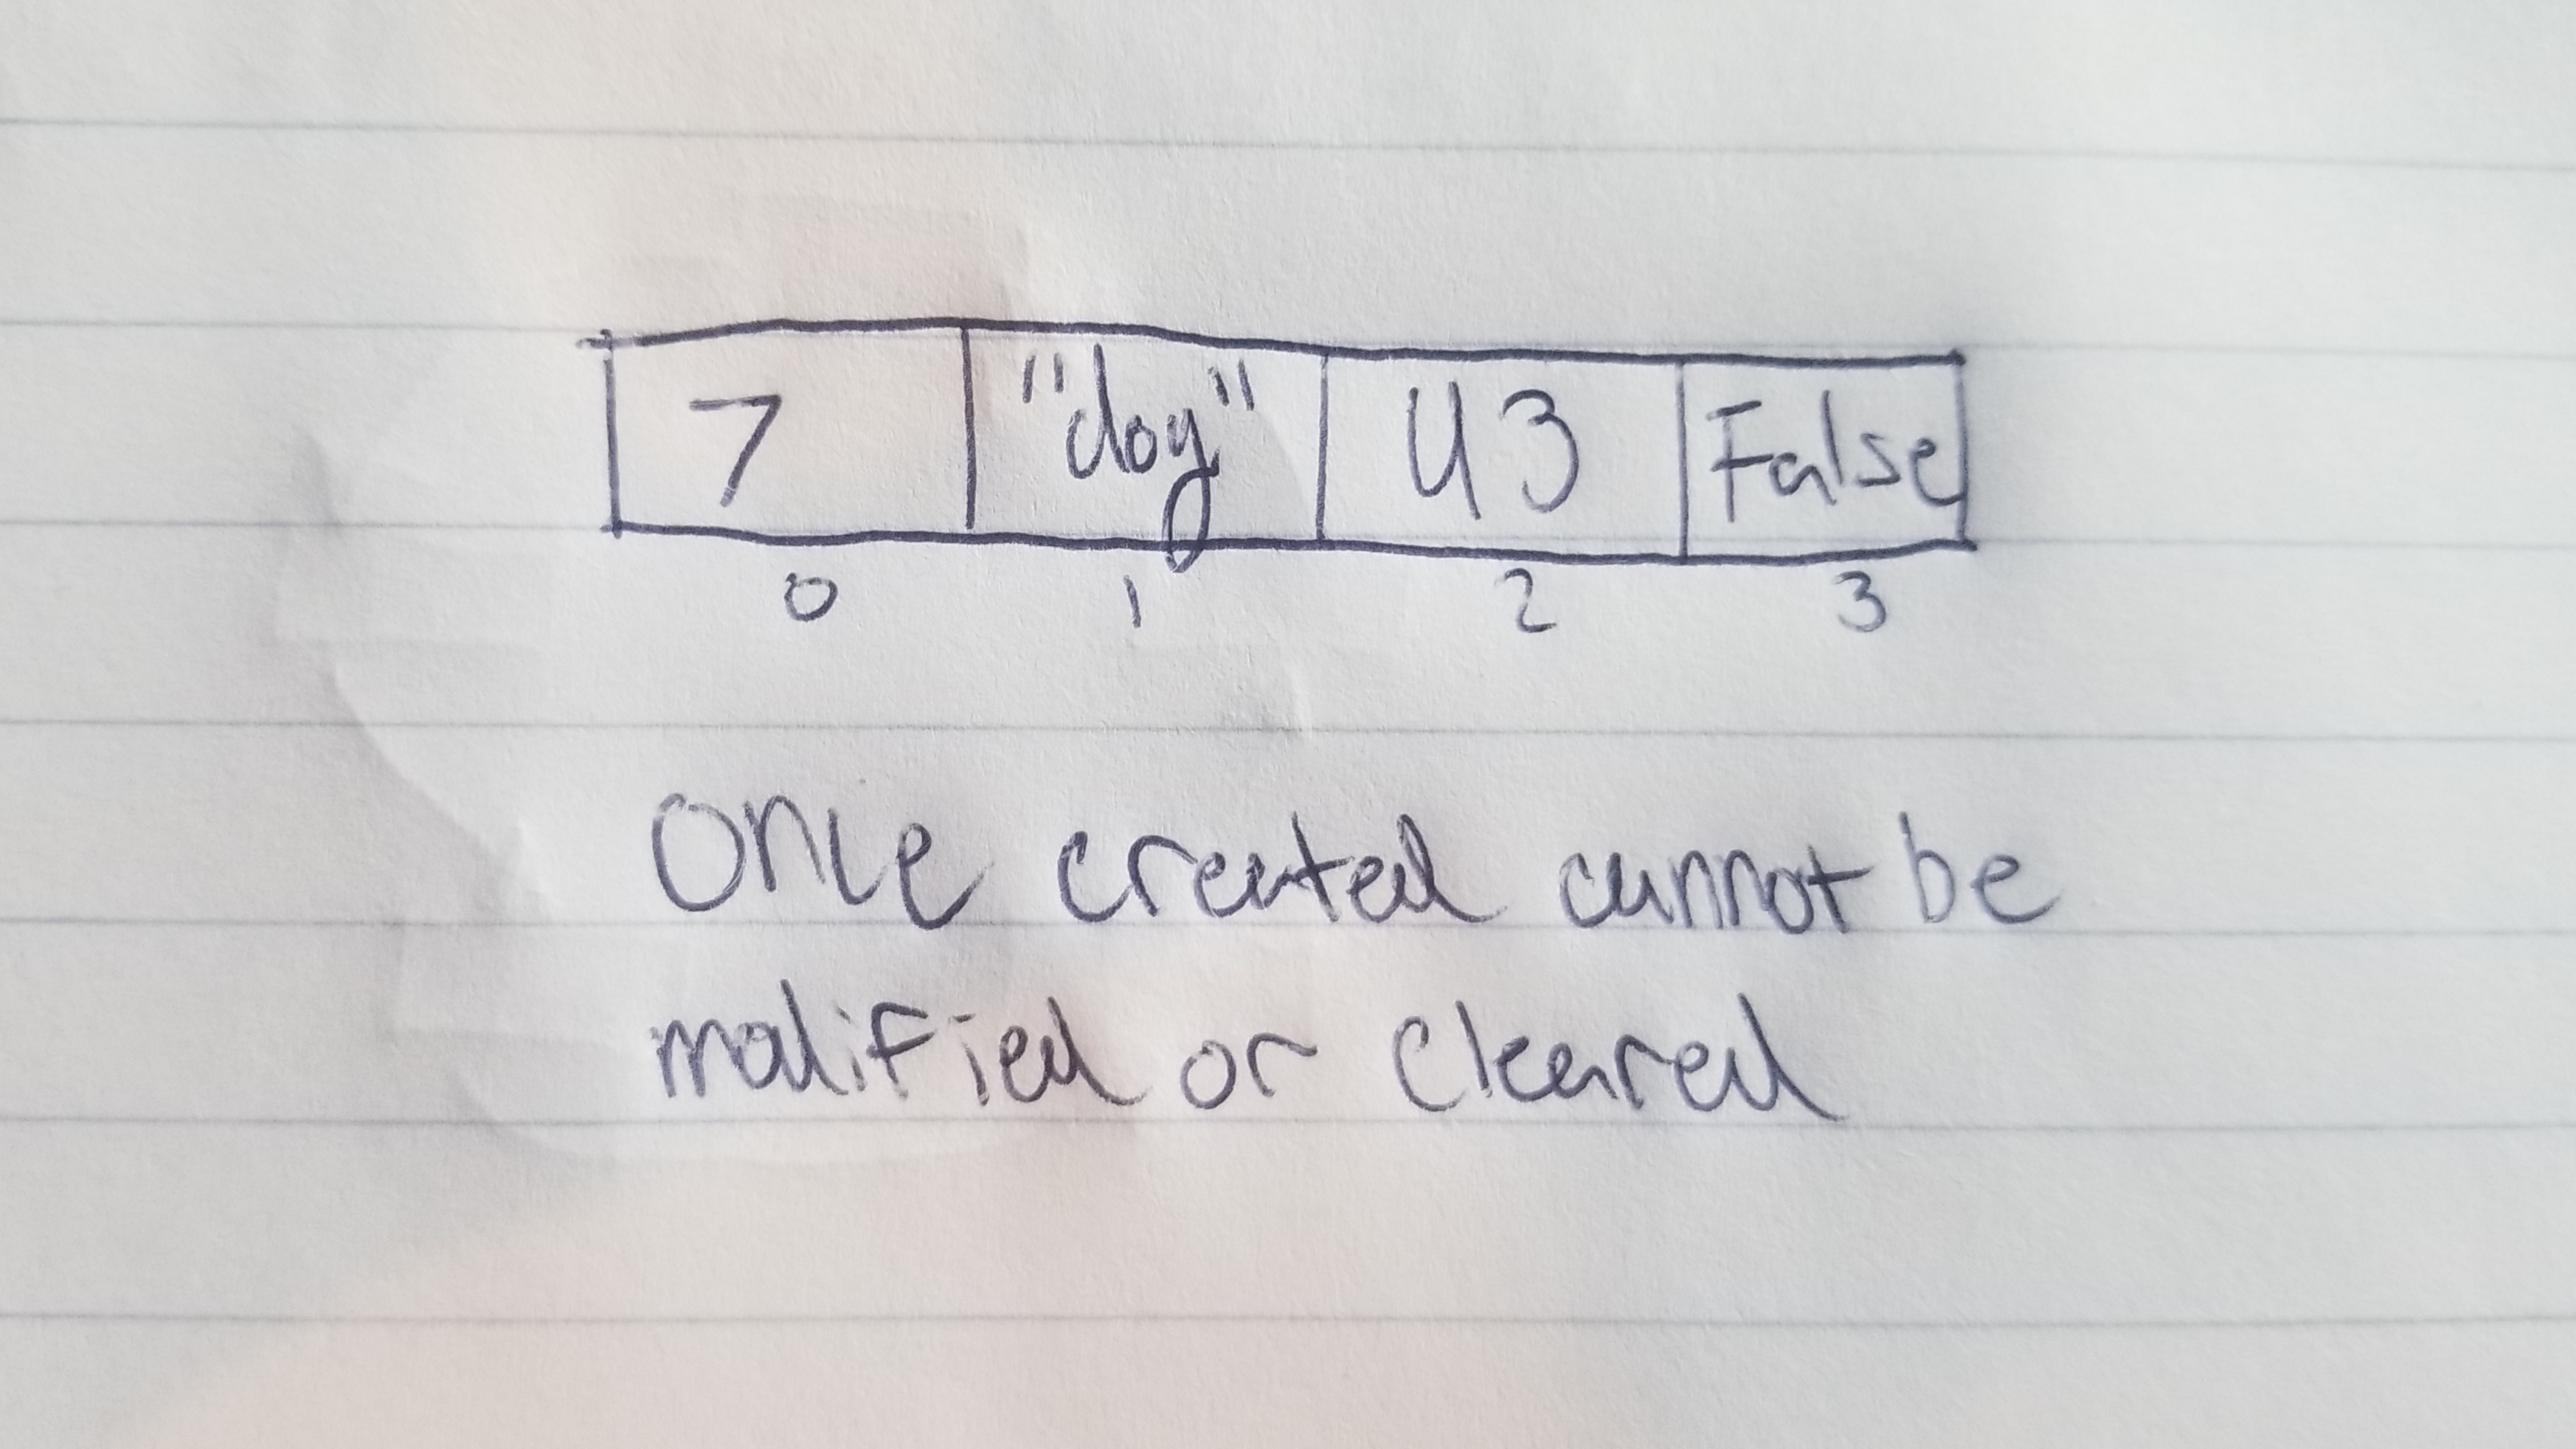 7 "dog" 43 False
0 1 2 3
Once created cannot be
modified or cleared